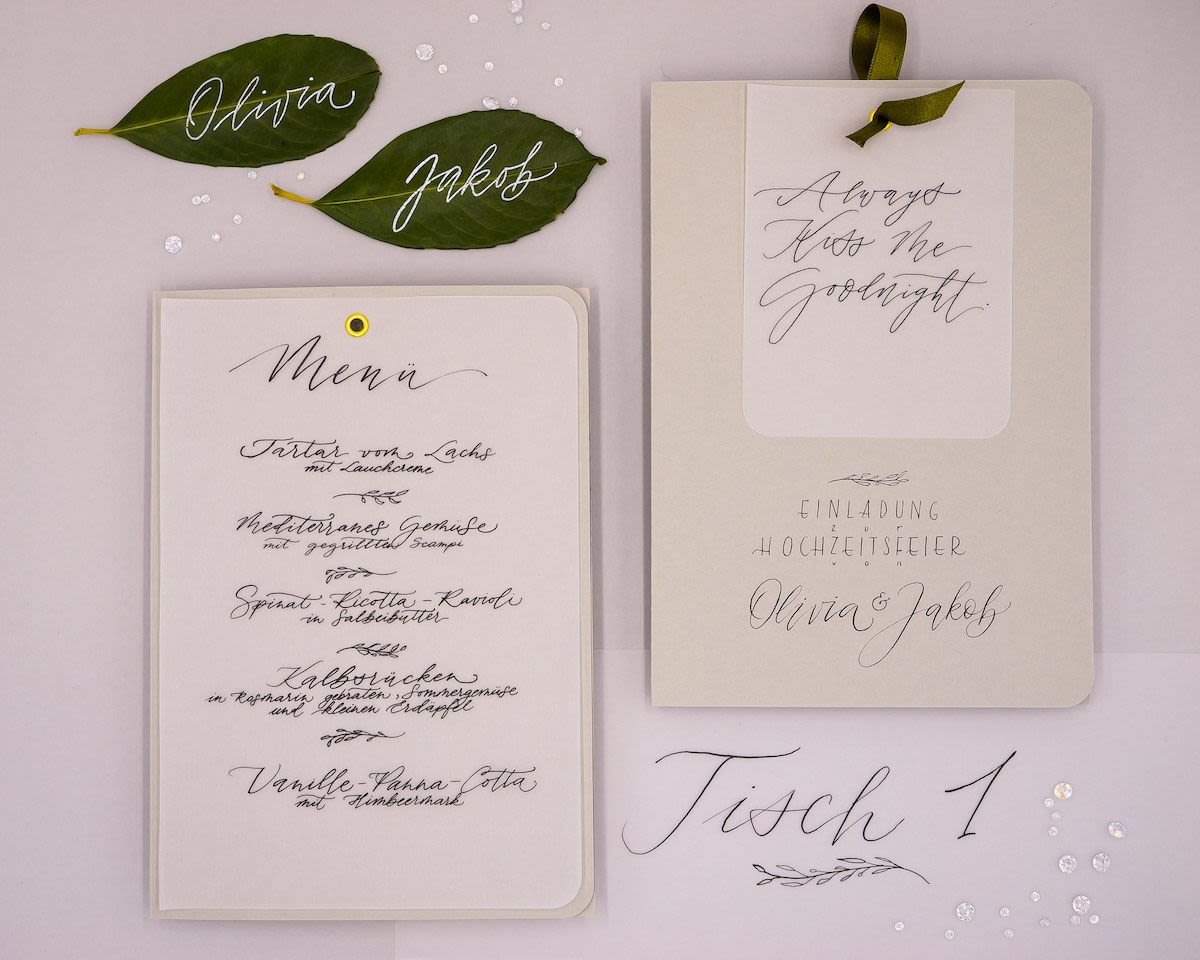 Olivia
Jakob
Menü
Tartar vom Lachs
mit Lauchcreme
Mediterranes Gemüse
mit gegrillten Scampi
Spinat-Ricotta-Ravioli
in Salbeibutter
Kalbsrücken
in Rosmarin gebraten, Sommergemüse
und kleinen Erdäpfel
Vanille-Panna-Cotta
mit Himbeermark
Always
Kiss Me
Goodnight.
EINLADUNG
zur
HOCHZEITSFEIER
von
Olivia & Jakob
Tisch 1